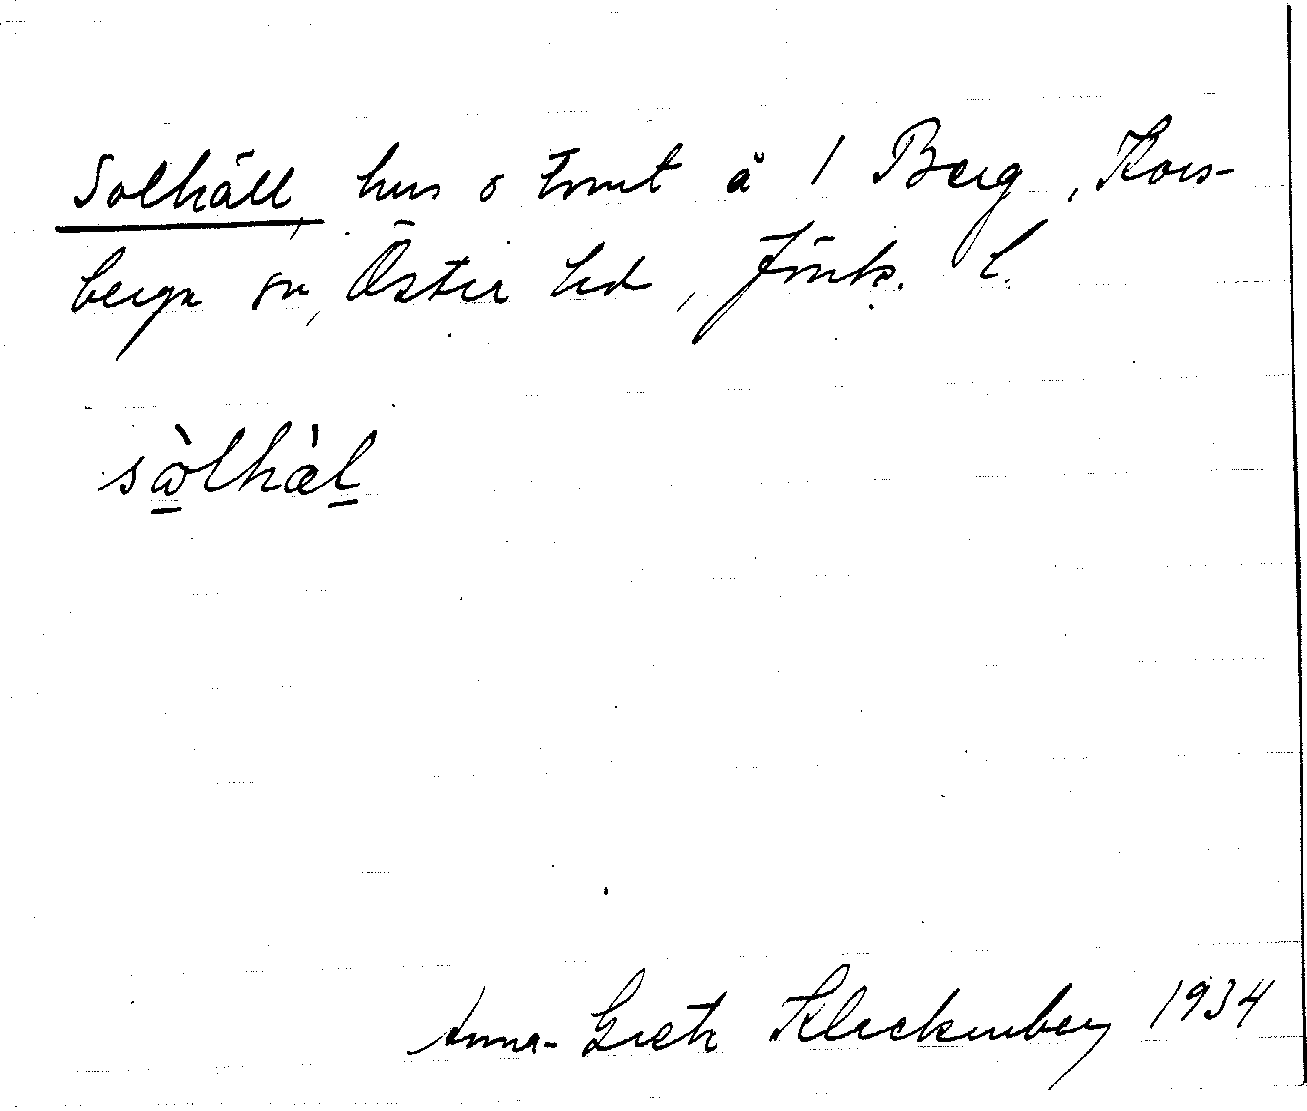 Solhäll, hus o tomt å 1 Berg, Kors-
berga sn, Östra hd, Jönk. l.
sòlhàl
Anna-Greta Kleckenberg 1934